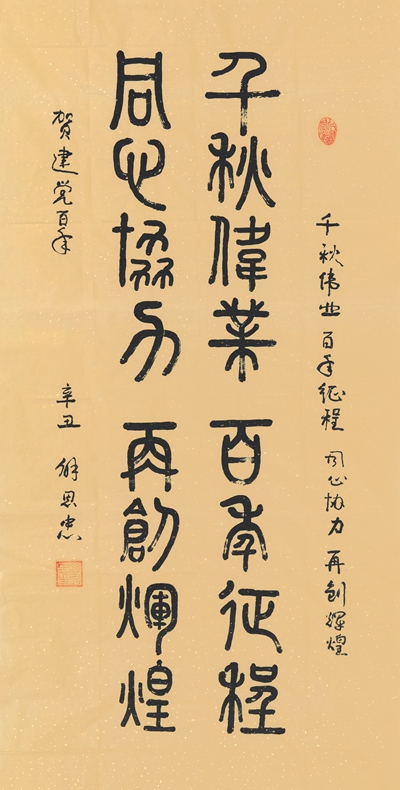 千秋伟业 百年征程 同心协力 再创辉煌
千秋偉業 百年征程
同心協力 再創輝煌
贺建党百年
辛丑 解思忠